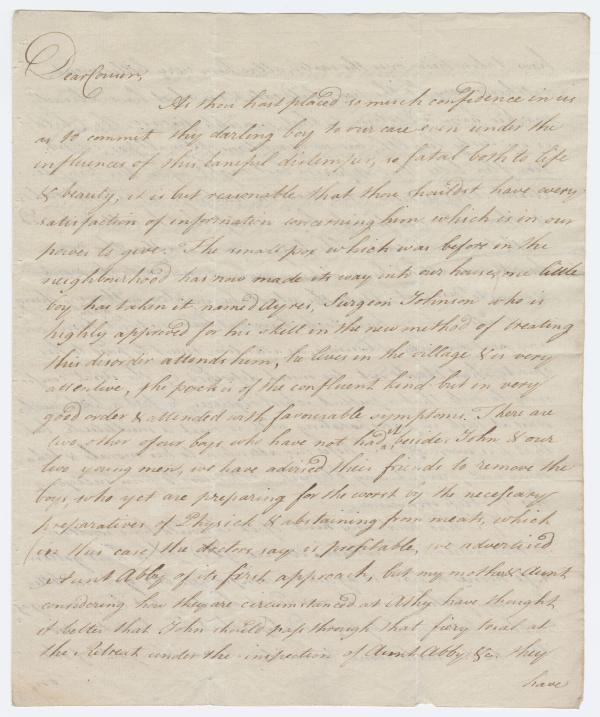 Dear Cousin,
As thou hast placed so much confidence in us
as to commit thy darling boy to our care even under the
influences of this baneful distemper, so fatal both to life
& beauty, it is but reasonable that thou shouldst have every
satisfaction of information concerning him which is in our
power to give. The small pox which was before in the
neighbourhood has now made its way into our house, one little
boy has taken it named Ayres, Surgeon Johnson who is
highly approved for his skill in the new method of treating
this disorder attends him, he lives in the village & is very
attentive, the pock is of the confluent kind but in very
good order & attended with favourable symptoms. There are
two other of our boys who have not had it besides John & our
two young men, we have advised their friends to remove the
boys, who yet are preparing for the worst by the necessary
preparatives of Physick & abstaining from meats, which
(in this case) the doctors say is profitable, we advertised
Aunt Abby of its first approach, but my mother & Aunt
considering how they are circumstanced at Ashy have thought
it better that John should pass through that fiery trial at
the Retreat under the inspection of Aunt Abby &c. they
have